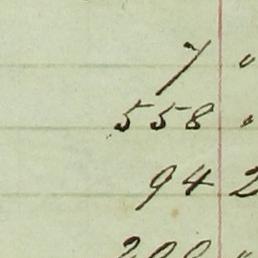 7 "
558 "
94 2